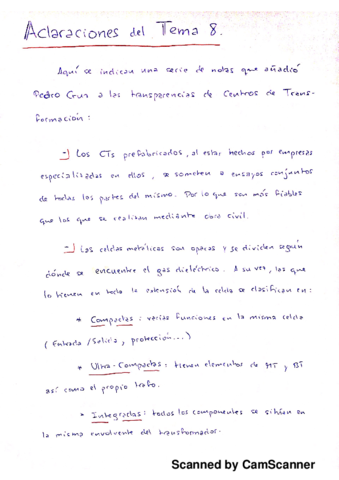 Aclaraciones del Tema 8.
Aquí se indican una serie de notas que añadió
Pedro Cruz a las transparencias de Centros de Trans-
formación:
-) Los CTs prefabricados, al estar hechos por empresas
especializadas en ellos, se someten a ensayos conjuntos
de todas las partes del mismo. Por lo que son más fiables
que los que se realizan mediante obra civil.
-) Las celdas metálicas son opacas y se dividen según
dónde se encuentre el gas dieléctrico. A su vez, las que
lo tienen en toda la extensión de la celda se clasifican en:
* Compactas: varias funciones en la misma celda
(Entrada/Salida, protección...)
* Ultra-Compactas: tienen elementos de MT y BT
así como el propio trafo.
* Integradas: todos los componentes se sitúan en
la misma envolvente del transformador.
Scanned by CamScanner